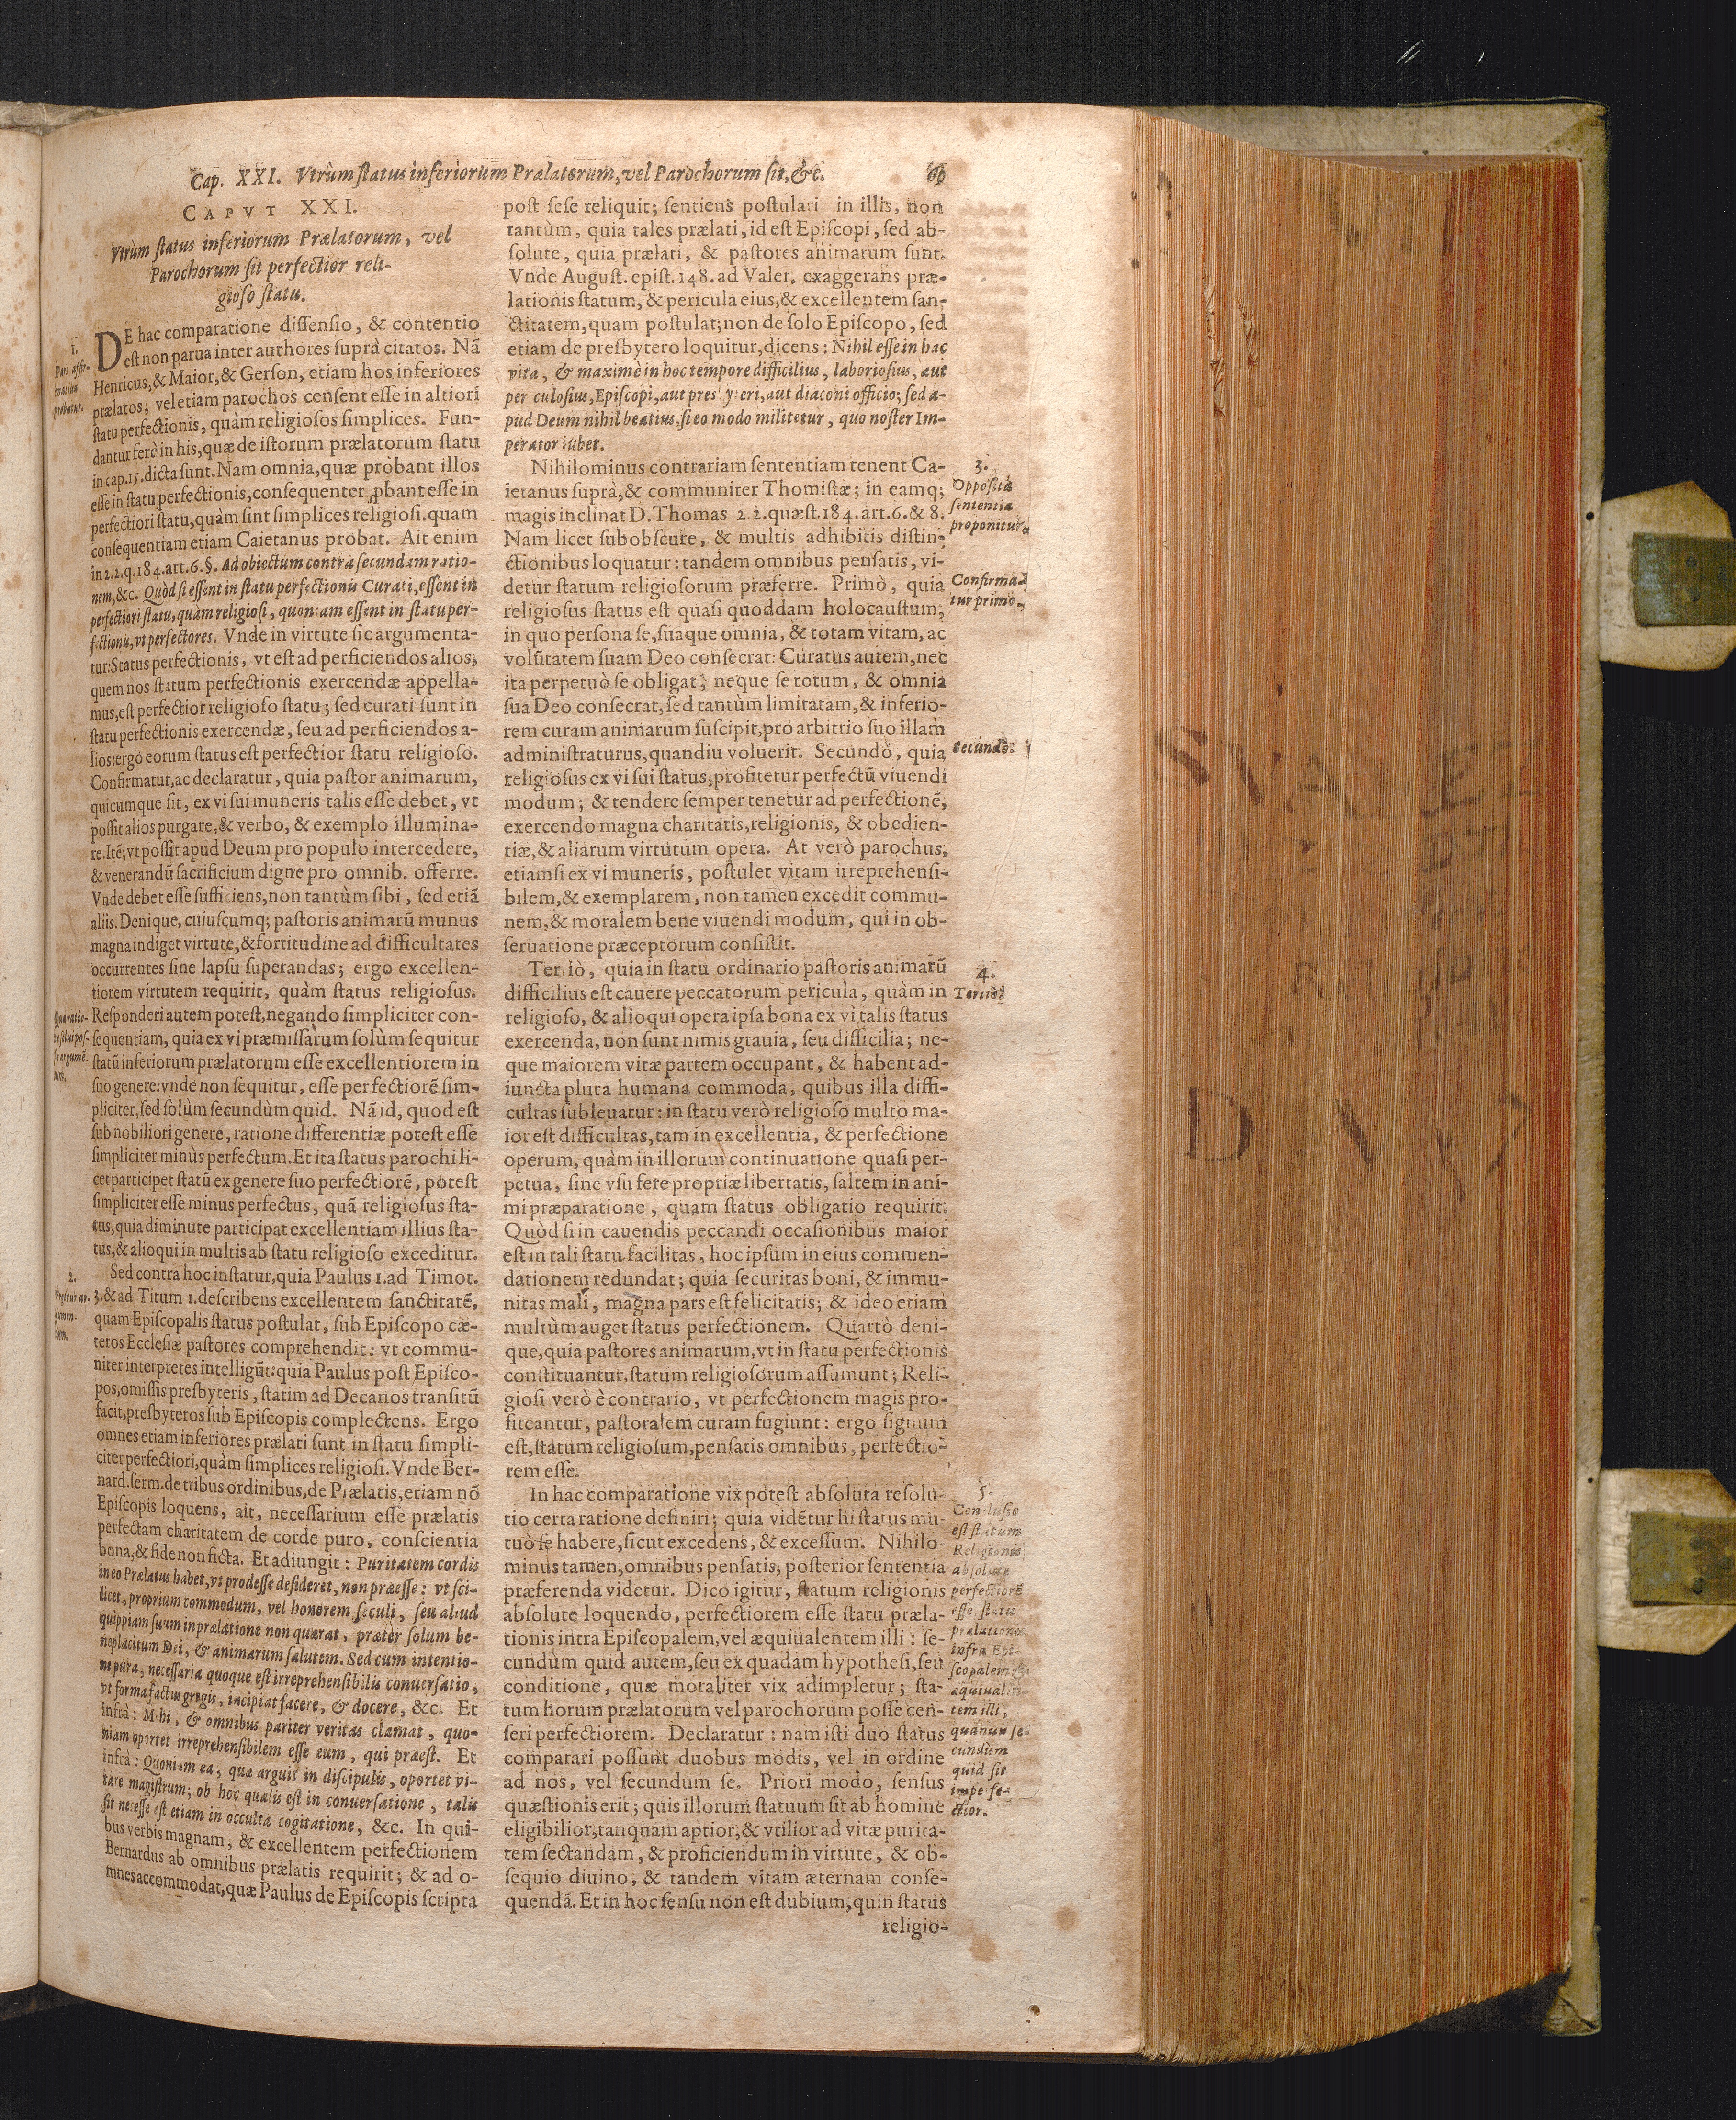 Cap. XXI. Vtrùm status inferiorum Prælatorum, vel Parochorum sit, &c.
CAPVT XXI.
Vtrùm status inferiorum Prælatorum, vel
Parochorum sit perfectior reli-
gioso statu.
1.
DE hac comparatione dissensio, & contentio
est non parua inter authores suprà citatos. Nã
Henricus, & Maior, & Gerson, etiam hos inferiores
prælatos, vel etiam parochos censent esse in altiori
statu perfectionis, quàm religiosos simplices. Fun-
dantur ferè in his, quæ de istorum prælatorum statu
in cap. 15. dicta sunt. Nam omnia, quæ probant illos
esse in statu perfectionis, consequenter ꝓbant esse in
perfectiori statu, quàm sint simplices religiosi. quam
consequentiam etiam Caietanus probat. Ait enim
in 2.2.q.184.art.6.§. Ad obiectum contra secundam ratio-
nem, &c. Quòd si essent in statu perfectionis Curati, essent in
perfectiori statu, quàm religiosi, quoniam essent in statu per-
fectionis, vt perfectores. Vnde in virtute sic argumenta-
tur: Status perfectionis, vt est ad perficiendos alios,
quem nos statum perfectionis exercendæ appella-
mus, est perfectior religioso statu; sed curati sunt in
statu perfectionis exercendæ, seu ad perficiendos a-
lios: ergo eorum status est perfectior statu religioso.
Confirmatur, ac declaratur, quia pastor animarum,
quicumque sit, ex vi sui muneris talis esse debet, vt
possit alios purgare, & verbo, & exemplo illumina-
re. Itẽ; vt possit apud Deum pro populo intercedere,
& venerandũ sacrificium digne pro omnib. offerre.
Vnde debet esse sufficiens, non tantùm sibi, sed etiã
aliis. Denique, cuiuscumq; pastoris animarũ munus
magna indiget virtute, & fortitudine ad difficultates
occurrentes sine lapsu superandas; ergo excellen-
tiorem virtutem requirit, quàm status religiosus.
Responderi autem potest, negando simpliciter con-
sequentiam, quia ex vi præmissarum solùm sequitur
statũ inferiorum prælatorum esse excellentiorem in
suo genere: vnde non sequitur, esse perfectiorẽ sim-
pliciter, sed solùm secundùm quid. Nã id, quod est
sub nobiliori genere, ratione differentiæ potest esse
simpliciter minùs perfectum. Et ita status parochi li-
cet participet statũ ex genere suo perfectiorẽ, potest
simpliciter esse minus perfectus, quã religiosus sta-
tus, quia diminute participat excellentiam illius sta-
tus, & alioqui in multis ab statu religioso exceditur.
2.
Sed contra hoc instatur, quia Paulus 1. ad Timot.
3. & ad Titum 1. describens excellentem sanctitatẽ,
quam Episcopalis status postulat, sub Episcopo cæ-
teros Ecclesiæ pastores comprehendit: vt commu-
niter interpretes intelligũt: quia Paulus post Episco-
pos, omissis presbyteris, statim ad Decanos transitũ
facit, presbyteros sub Episcopis complectens. Ergo
omnes etiam inferiores prælati sunt in statu simpli-
citer perfectiori, quàm simplices religiosi. Vnde Ber-
nard. serm. de tribus ordinibus, de Prælatis, etiam nõ
Episcopis loquens, ait, necessarium esse prælatis
perfectam charitatem de corde puro, conscientia
bona, & fide non ficta. Et adiungit: Puritatem cordis
in eo Prælatus habet, vt prodesse desideret, non præesse: vt sci-
licet, proprium commodum, vel honorem seculi, seu aliud
quippiam suum in prælatione non quærat, præter solum be-
neplacitum Dei, & animarum salutem. Sed cum intentio-
ne pura, necessaria quoque est irreprehensibilis conuersatio,
vt forma factus gregis, incipiat facere, & docere, &c. Et
infrà: Mihi, & omnibus pariter veritas clamat, quo-
niam oportet irreprehensibilem esse eum, qui præest. Et
infrà: Quoniam ea, quæ arguit in discipulis, oportet vi-
tare magistrum; ob hoc qualis est in conuersatione, talis
sit necesse est etiam in occulta cogitatione, &c. In qui-
bus verbis magnam, & excellentem perfectionem
Bernardus ab omnibus prælatis requirit; & ad o-
mnes accommodat, quæ Paulus de Episcopis scripta
post sese reliquit; sentiens postulari in illis, non
tantùm, quia tales prælati, id est Episcopi, sed ab-
solute, quia prælati, & pastores animarum sunt.
Vnde August. epist. 148. ad Valer. exaggerans præ-
lationis statum, & pericula eius, & excellentem san-
ctitatem, quam postulat; non de solo Episcopo, sed
etiam de presbytero loquitur, dicens: Nihil esse in hac
vita, & maximè in hoc tempore difficilius, laboriosius, aut
periculosius, Episcopi, aut presbyteri, aut diaconi officio; sed a-
pud Deum nihil beatius, si eo modo militetur, quo noster Im-
perator iubet.
Nihilominus contrariam sententiam tenent Ca-
ietanus suprà, & communiter Thomistæ; in eamq;
magis inclinat D. Thomas 2.2. quæst. 184. art. 6. & 8.
Nam licet subobscure, & multis adhibitis distin-
ctionibus loquatur: tandem omnibus pensatis, vi-
detur statum religiosorum præferre. Primò, quia
religiosus status est quasi quoddam holocaustum,
in quo persona se, suaque omnia, & totam vitam, ac
volũtatem suam Deo consecrat: Curatus autem, nec
ita perpetuò se obligat, neque se totum, & omnia
sua Deo consecrat, sed tantùm limitatam, & inferio-
rem curam animarum suscipit, pro arbitrio suo illam
administraturus, quandiu voluerit. Secundò, quia
religiosus ex vi sui status, profitetur perfectũ viuendi
modum; & tendere semper tenetur ad perfectionẽ,
exercendo magna charitatis, religionis, & obedien-
tiæ, & aliarum virtutum opera. At verò parochus,
etiamsi ex vi muneris, postulet vitam irreprehensi-
bilem, & exemplarem, non tamen excedit commu-
nem, & moralem bene viuendi modum, qui in ob-
seruatione præceptorum consistit.
Tertiò, quia in statu ordinario pastoris animarũ
difficilius est cauere peccatorum pericula, quàm in
religioso, & alioqui opera ipsa bona ex vi talis status
exercenda, non sunt nimis grauia, seu difficilia; ne-
que maiorem vitæ partem occupant, & habent ad-
iuncta plura humana commoda, quibus illa diffi-
cultas subleuatur: in statu verò religioso multo ma-
ior est difficultas, tam in excellentia, & perfectione
operum, quàm in illorum continuatione quasi per-
petua, sine vsu fere propriæ libertatis, saltem in ani-
mi præparatione, quam status obligatio requirit.
Quòd si in cauendis peccandi occasionibus maior
est in tali statu facilitas, hoc ipsum in eius commen-
dationem redundat; quia securitas boni, & immu-
nitas mali, magna pars est felicitatis; & ideo etiam
multùm auget status perfectionem. Quartò deni-
que, quia pastores animarum, vt in statu perfectionis
constituantur, statum religiosorum assumunt; Reli-
giosi verò è contrario, vt perfectionem magis pro-
fiteantur, pastoralem curam fugiunt: ergo signum
est, statum religiosum, pensatis omnibus, perfectio-
rem esse.
In hac comparatione vix potest absoluta resolu-
tio certa ratione definiri; quia vidẽtur hi status mu-
tuò se habere, sicut excedens, & excessum. Nihilo-
minus tamen, omnibus pensatis, posterior sententia
præferenda videtur. Dico igitur, statum religionis
absolute loquendo, perfectiorem esse statu præla-
tionis intra Episcopalem, vel æquiualentem illi: se-
cundùm quid autem, seu ex quadam hypothesi, seu
conditione, quæ moraliter vix adimpletur; sta-
tum horum prælatorum vel parochorum posse cen-
seri perfectiorem. Declaratur: nam isti duo status
comparari possunt duobus modis, vel in ordine
ad nos, vel secundum se. Priori modo, sensus
quæstionis erit; quis illorum statuum sit ab homine
eligibilior, tanquam aptior, & vtilior ad vitæ purita-
tem sectandam, & proficiendum in virtute, & ob-
sequio diuino, & tandem vitam æternam conse-
quendã. Et in hoc sensu non est dubium, quin status
religio-
3.
Opposita
sententia
proponitur.
Confirma-
tur primò.
Secundò.
4.
Tertiò.
5.
Conclusio
est statum
Religionis
absolute
perfectiorẽ
esse statu
prælationis
infra Epi-
scopalem
æquiualen-
tem illi,
quamuis se-
cundùm
quid sit
imperfe-
ctior.